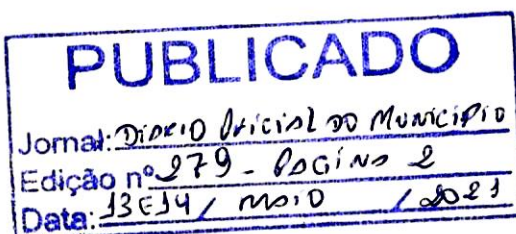 PUBLICADO
Jornal: DIÁRIO OFICIAL DO MUNICÍPIO
Edição nº 279 - PÁGINA 2
Data: 13 E 14 / MAIO / 2021